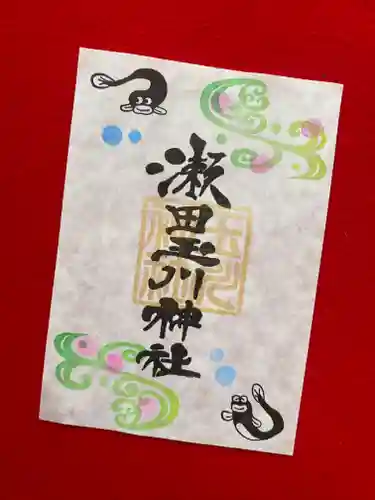 瀬田玉川神社